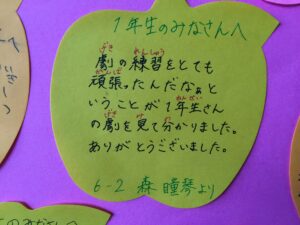 1年生のみなさんへ
劇の練習をとても
頑張ったんだなぁと
いうことが1年生さん
の劇を見て分かりました。
ありがとうございました。
6-2 森 瞳琴より